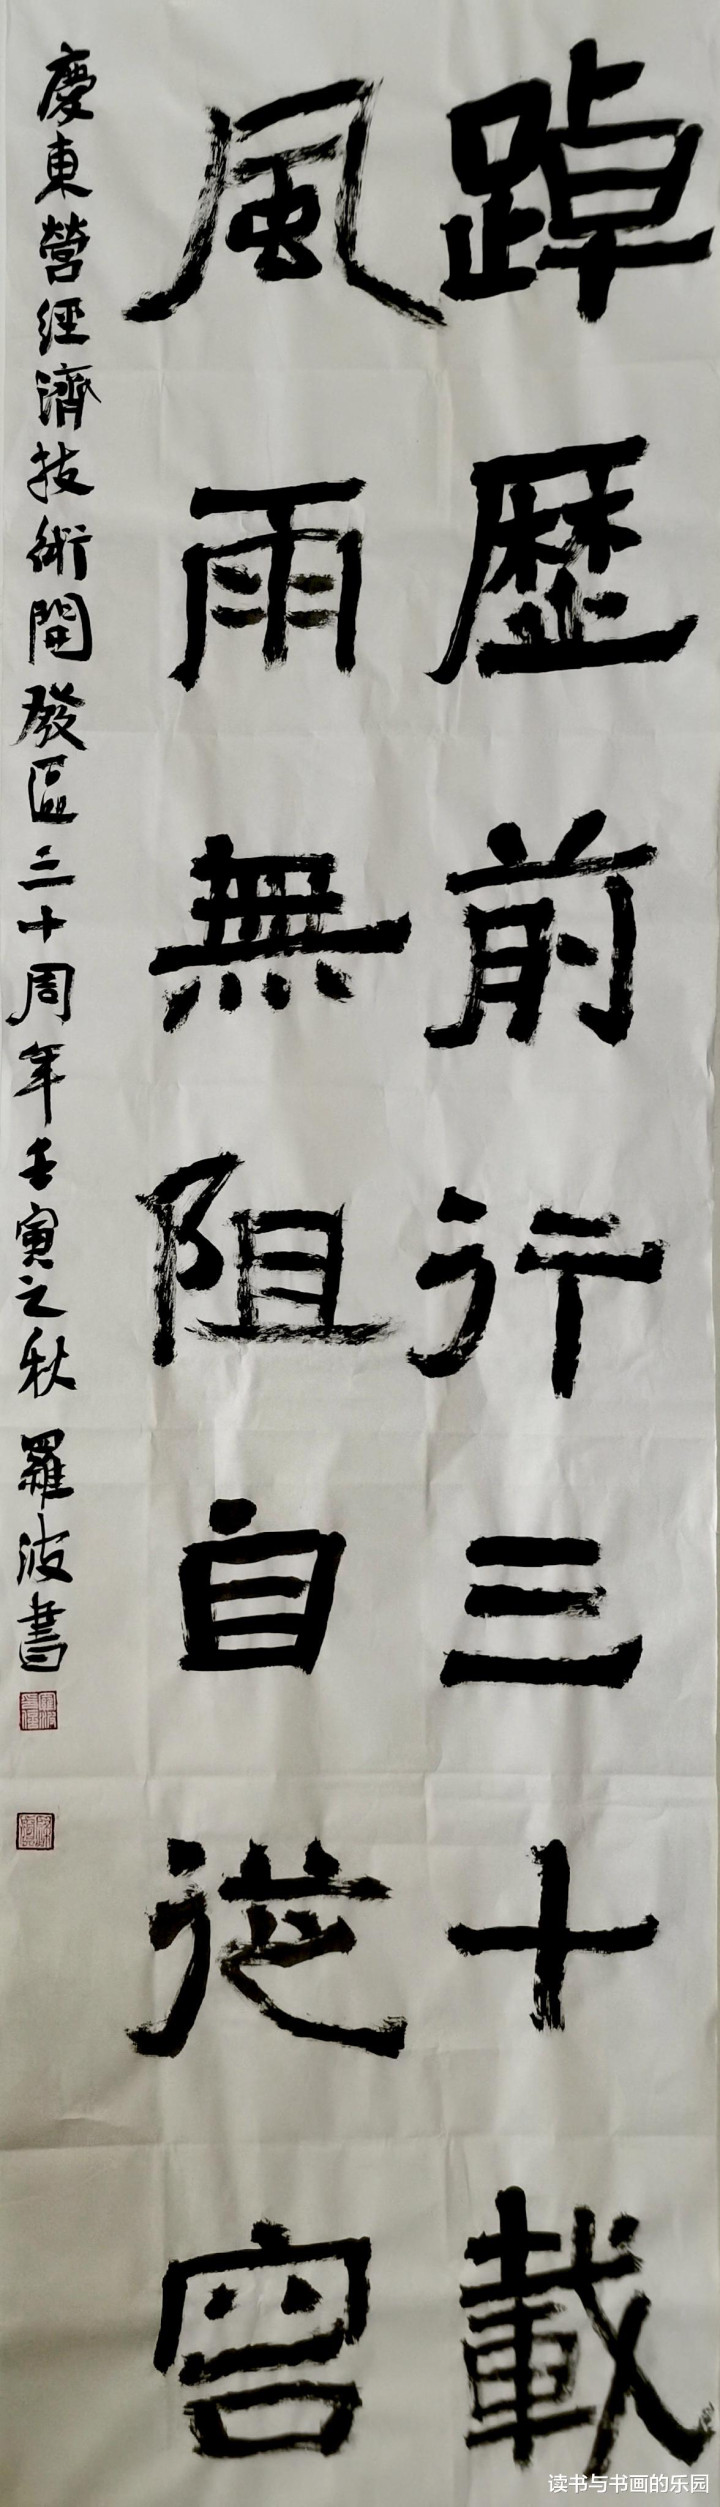 踔歷前行三十載
風雨無阻自從容
慶東營經濟技術開發區三十周年壬寅之秋 羅波書
读书与书画的乐园